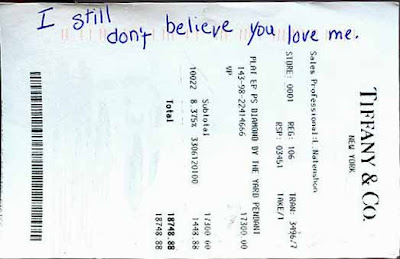 I still
don't believe you love me.
TIFFANY & CO.
NEW YORK
Sales Professional:L. Natenshon
STORE: 0001 REG: 106 TRAN: 3496/7
RSP: 03451 TAKE/1
PLAT EP PS DIAMOND BY THE YARD PENDANT
143-98-22414666 17300 00
VP
Subtotal 17300 00
10022 8.375% 3306120100 1448.88
Total 18748.88
18748 88